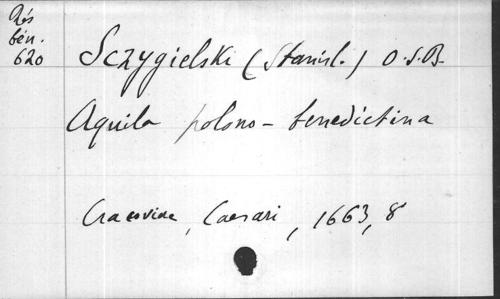 Rés
bén.
620
Sczygielski (Stanisl.) O.S.B.
Aquila polono-benedictina
Cracoviae, Caesari, 1663, 8°